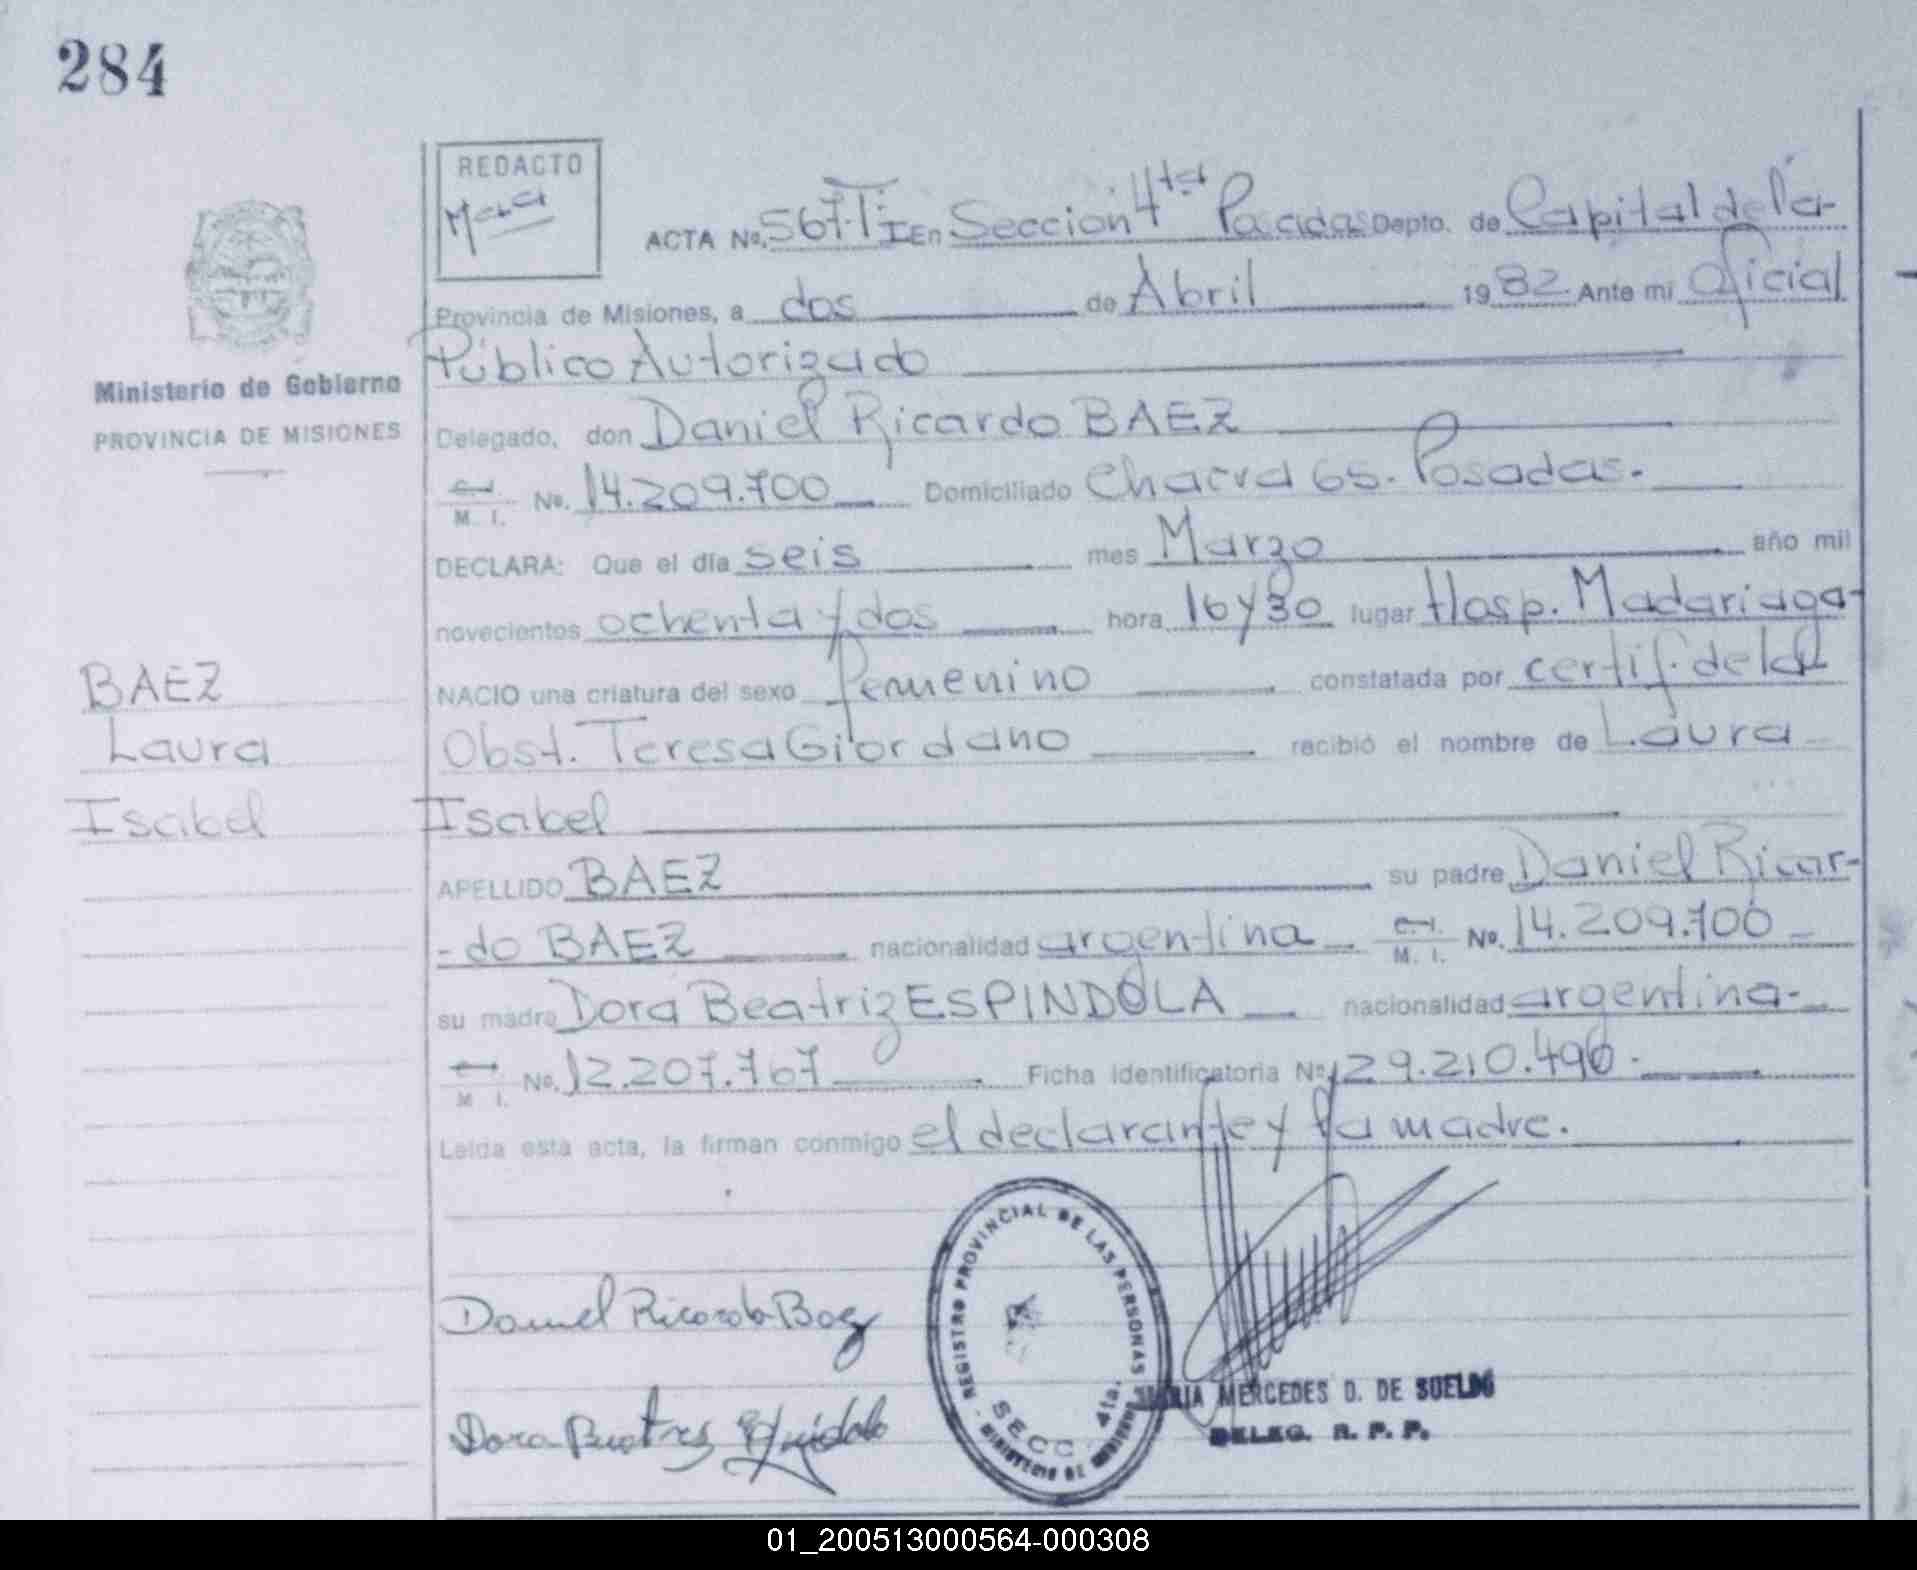 284
REDACTO
ACTA No. 567.T I En Sección 4ta Posadas Depto. de Capital de la
Provincia de Misiones, a dos de Abril 1982 Ante mi Oficial
Público Autorizado
Ministerio de Gobierno
PROVINCIA DE MISIONES
Delegado, don Daniel Ricardo BAEZ
M. I. No. 14.209.700 Domiciliado Chacra 65. Posadas.
DECLARA: Que el día seis mes Marzo año mil
novecientos ochenta y dos hora 16 y 30 lugar Hosp. Madariaga
BAEZ
NACIO una criatura del sexo femenino constatada por certif. de la
Laura
Obst. Teresa Giordano recibió el nombre de Laura
Isabel
Isabel
APELLIDO BAEZ su padre Daniel Ricar-
-do BAEZ nacionalidad argentina C.I. M. I. No. 14.209.700
su madre Dora Beatriz ESPINDOLA nacionalidad argentina-
M I. No. 12.207.767 Ficha Identificatoria No. 29.210.496.
Leída esta acta, la firman conmigo el declarante y la madre.
REGISTRO PROVINCIAL DE LAS PERSONAS
SECC 4ta.
MINISTERIO DE GOBIERNO
Daniel Ricardo Baez
MARIA MERCEDES D. DE SUELDO
DELEG. R. P. P.
Dora Beatriz Espíndola
01_200513000564-000308